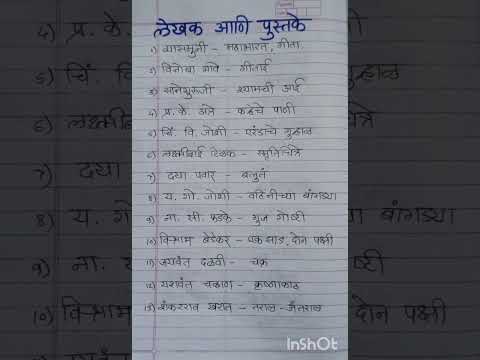 लेखक आणि पुस्तके
१) व्यासमुनी - महाभारत, गीता
२) विनोबा भावे - गीताई
३) सानेगुरुजी - श्यामची आई
४) प्र. के. अत्रे - कऱ्हेचे पाणी
५) चिं. वि. जोशी - एरंडाचे गुऱ्हाळ
६) लक्ष्मीबाई टिळक - स्मृतिचित्रे
७) दया पवार - बलुतं
८) य. गो. जोशी - वहिनीच्या बांगड्या
९) ना. सी. फडके - गुज गोष्टी
१०) विश्राम बेडेकर - एक झाड, दोन पक्षी
११) जयवंत दळवी - चक्र
१२) यशवंत चव्हाण - कृष्णाकाठ
१३) शंकरराव खरात - तराळ - अंतराळ
InShOt